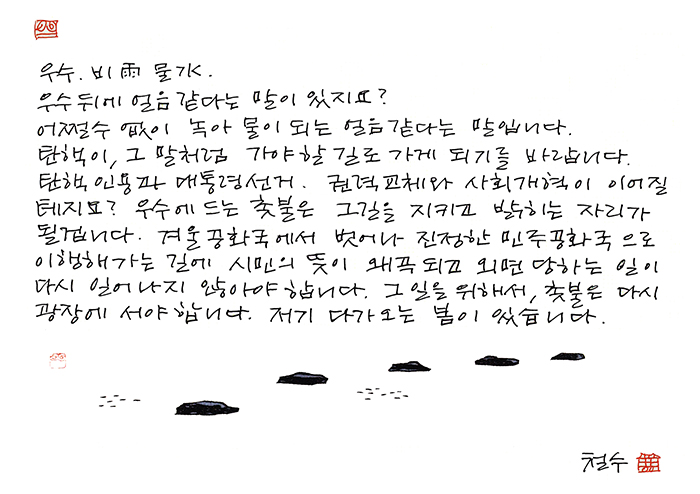 우수. 비 雨 물 水.
우수 뒤에 얼음같다는 말이 있지요?
어쩔수 없이 녹아 물이 되는 얼음같다는 말입니다.
탄핵이, 그 말처럼 가야할 길로 가게 되기를 바랍니다.
탄핵인용과 대통령선거. 권력교체와 사회개혁이 이어질
테지요? 우수에 드는 촛불은 그길을 지키고 밝히는 자리가
될겁니다. 겨울공화국에서 벗어나 진정한 민주공화국으로
이행해가는 길에 시민의 뜻이 왜곡되고 외면 당하는 일이
다시 일어나지 않아야 합니다. 그 일을 위해서, 촛불은 다시
광장에 서야 합니다. 저기 다가오는 봄이 있습니다.
철수